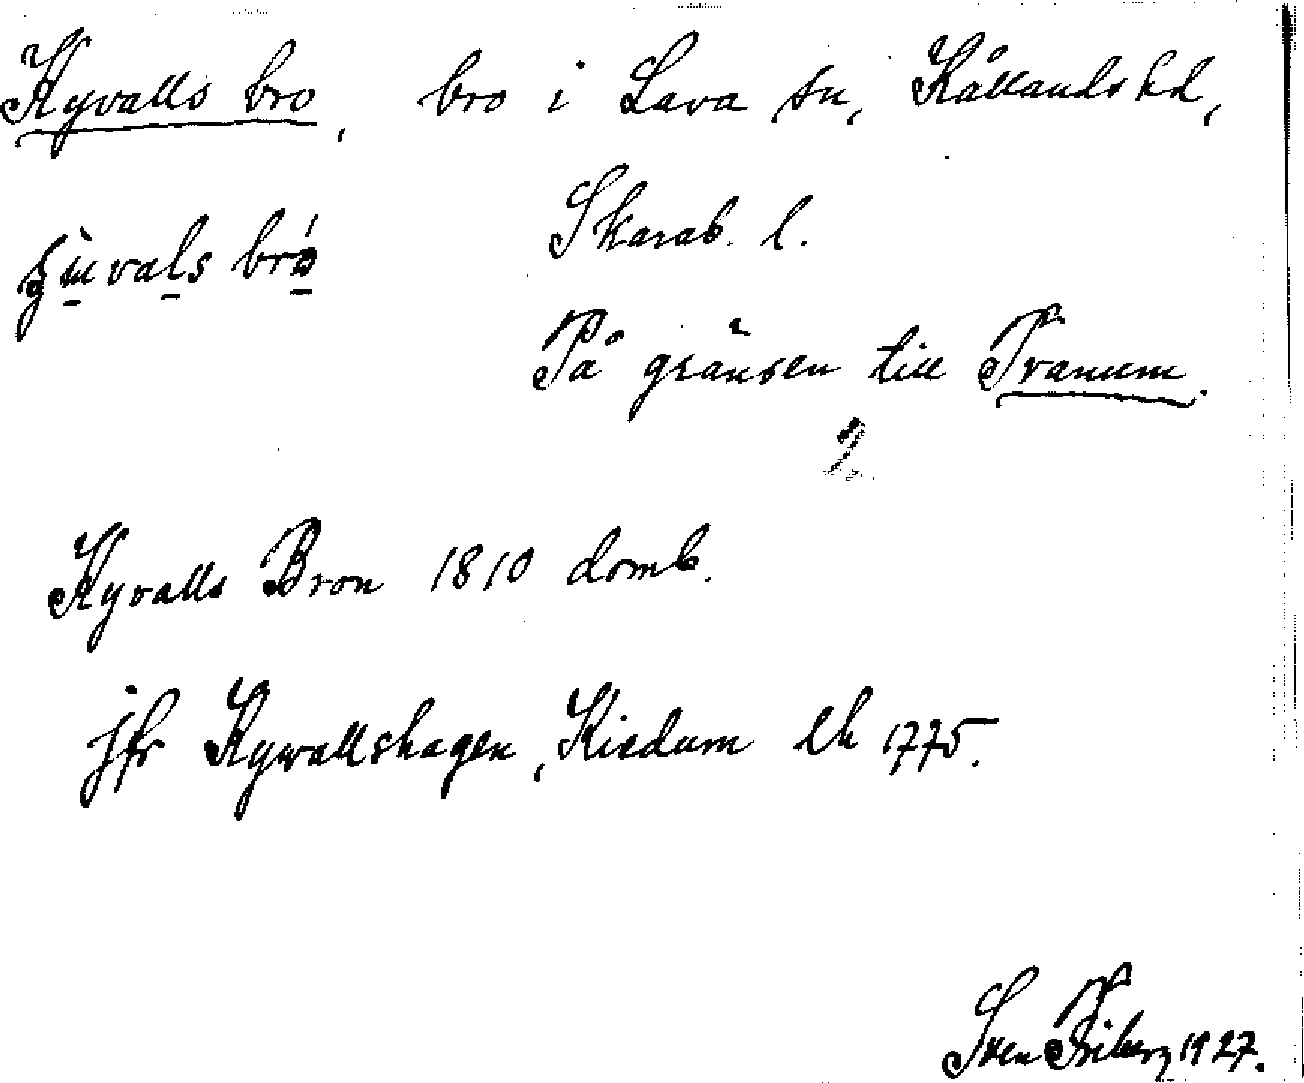 Kyvalls bro, bro i Lava sn, Kållands hd,
Skarab. l.
vals bro
På gränsen till Tranum.
2
Kyvalls Bron 1810 domb.
jfr Kywallshagen, Kiedum lh 1775.
Sven Friberg 1927.